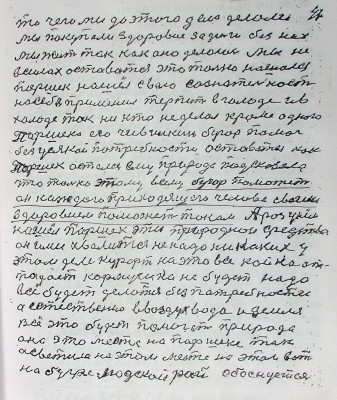 то чего мы до этого дела делали
мы покупали здоровье за дочи без них
мы жит так как оно делалос мы не
всилах остоватся это только нашолся
паршек нашол свою сознателност
на себя принимал терпит в голоде и в
холоде так ни кто не делал кроме одного
Паршека его чевилкин бугор помог
без усякой потребности остоватся как
Паршек остался ему природа подсказала
что только этому всему бугор поможет
он каждого приходящего человека своим
здоровием поможет только А другим
нашол паршек эти природные средства
он ими хвалится не надо никаких у
этом деле курорт на это все койка от
подает кормушка не будет надо
всё будет делатся без потребностей
а естественно в воздух вода и земля
всё это будет помогат природа
она это место на паршеке так
осветила на этом месте на этом вот
на бугре людской рай обоснуется